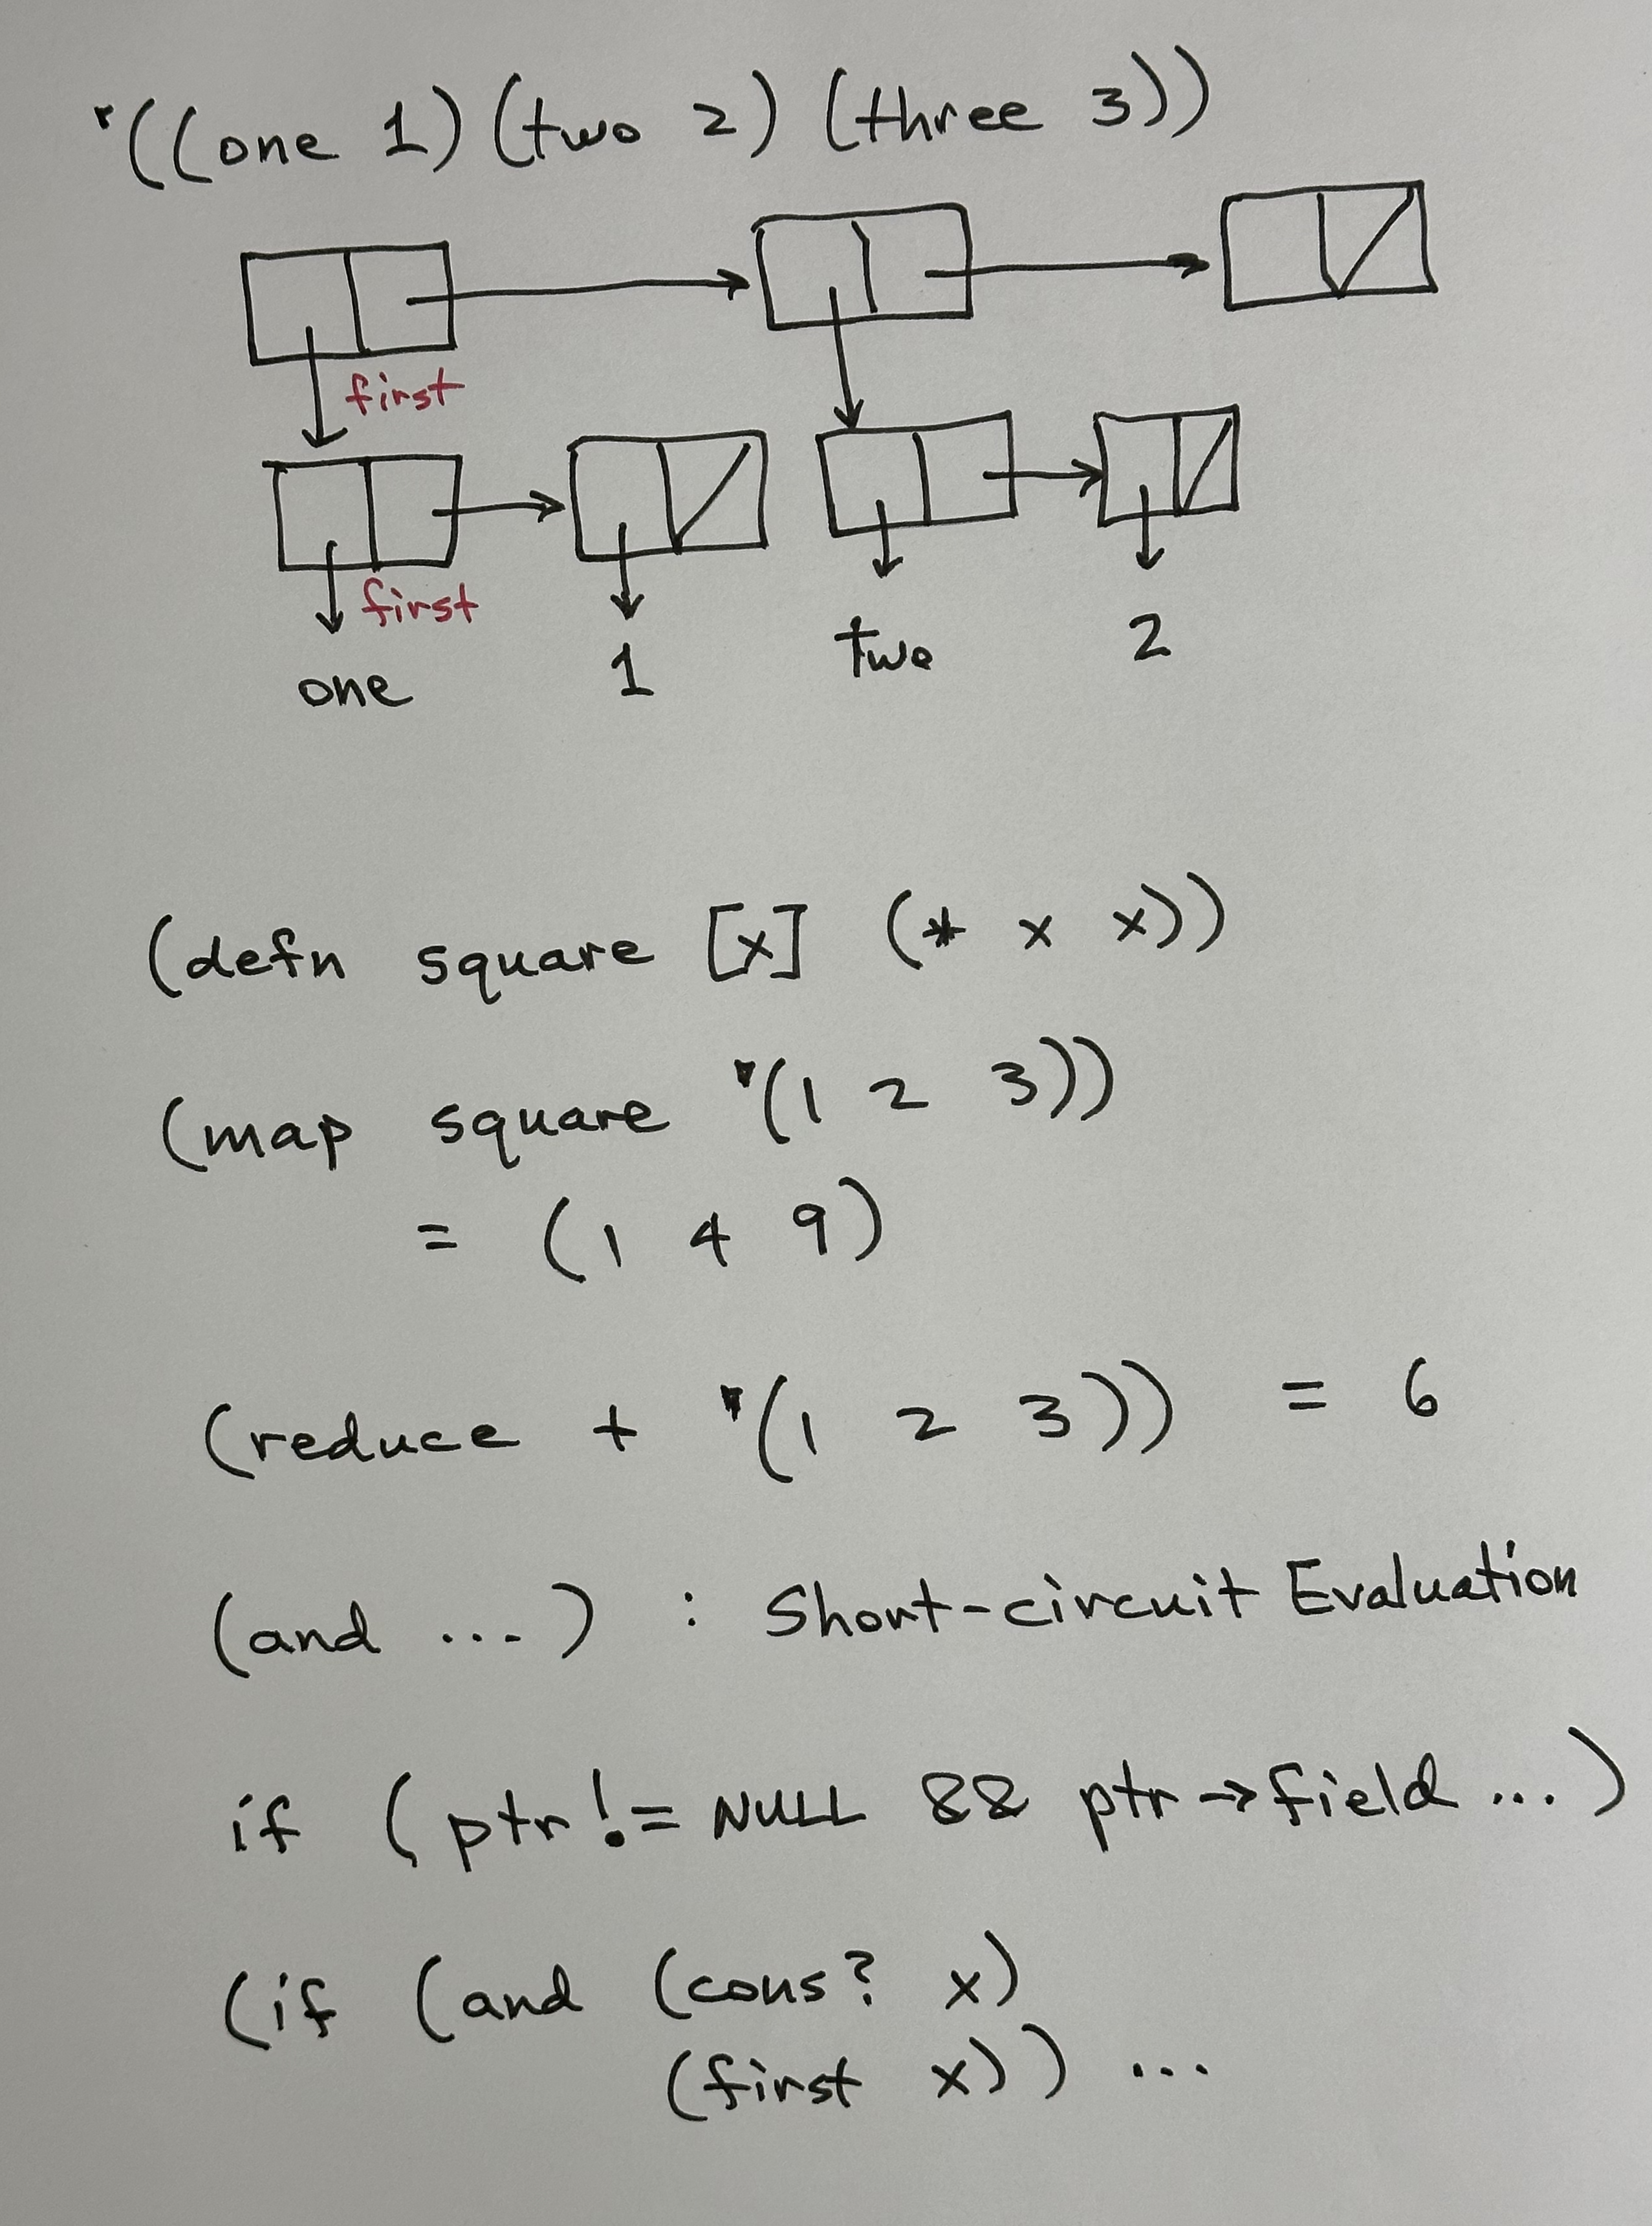 '((one 1) (two 2) (three 3))
first
first
one 1 two 2
(defn square [x] (* x x))
(map square '(1 2 3))
= (1 4 9)
(reduce + '(1 2 3)) = 6
(and ...) : Short-circuit Evaluation
if (ptr != NULL && ptr→field ...)
(if (and (cons? x)
(first x)) ...